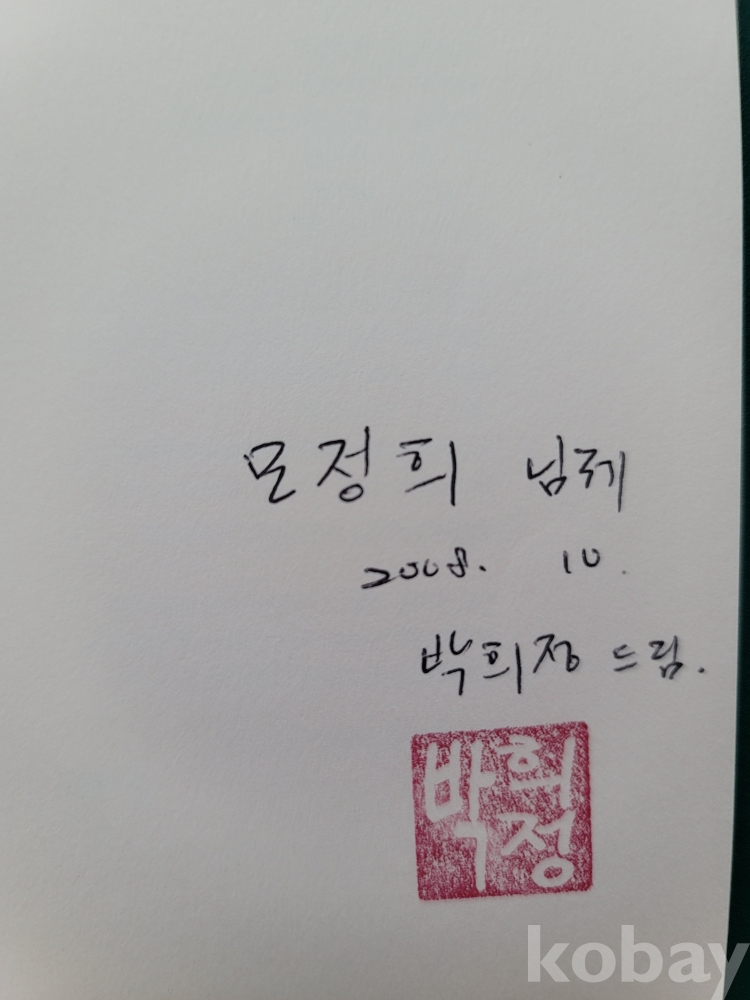 모정희 님께
2008. 10.
박희정 드림.
박희정
kobay